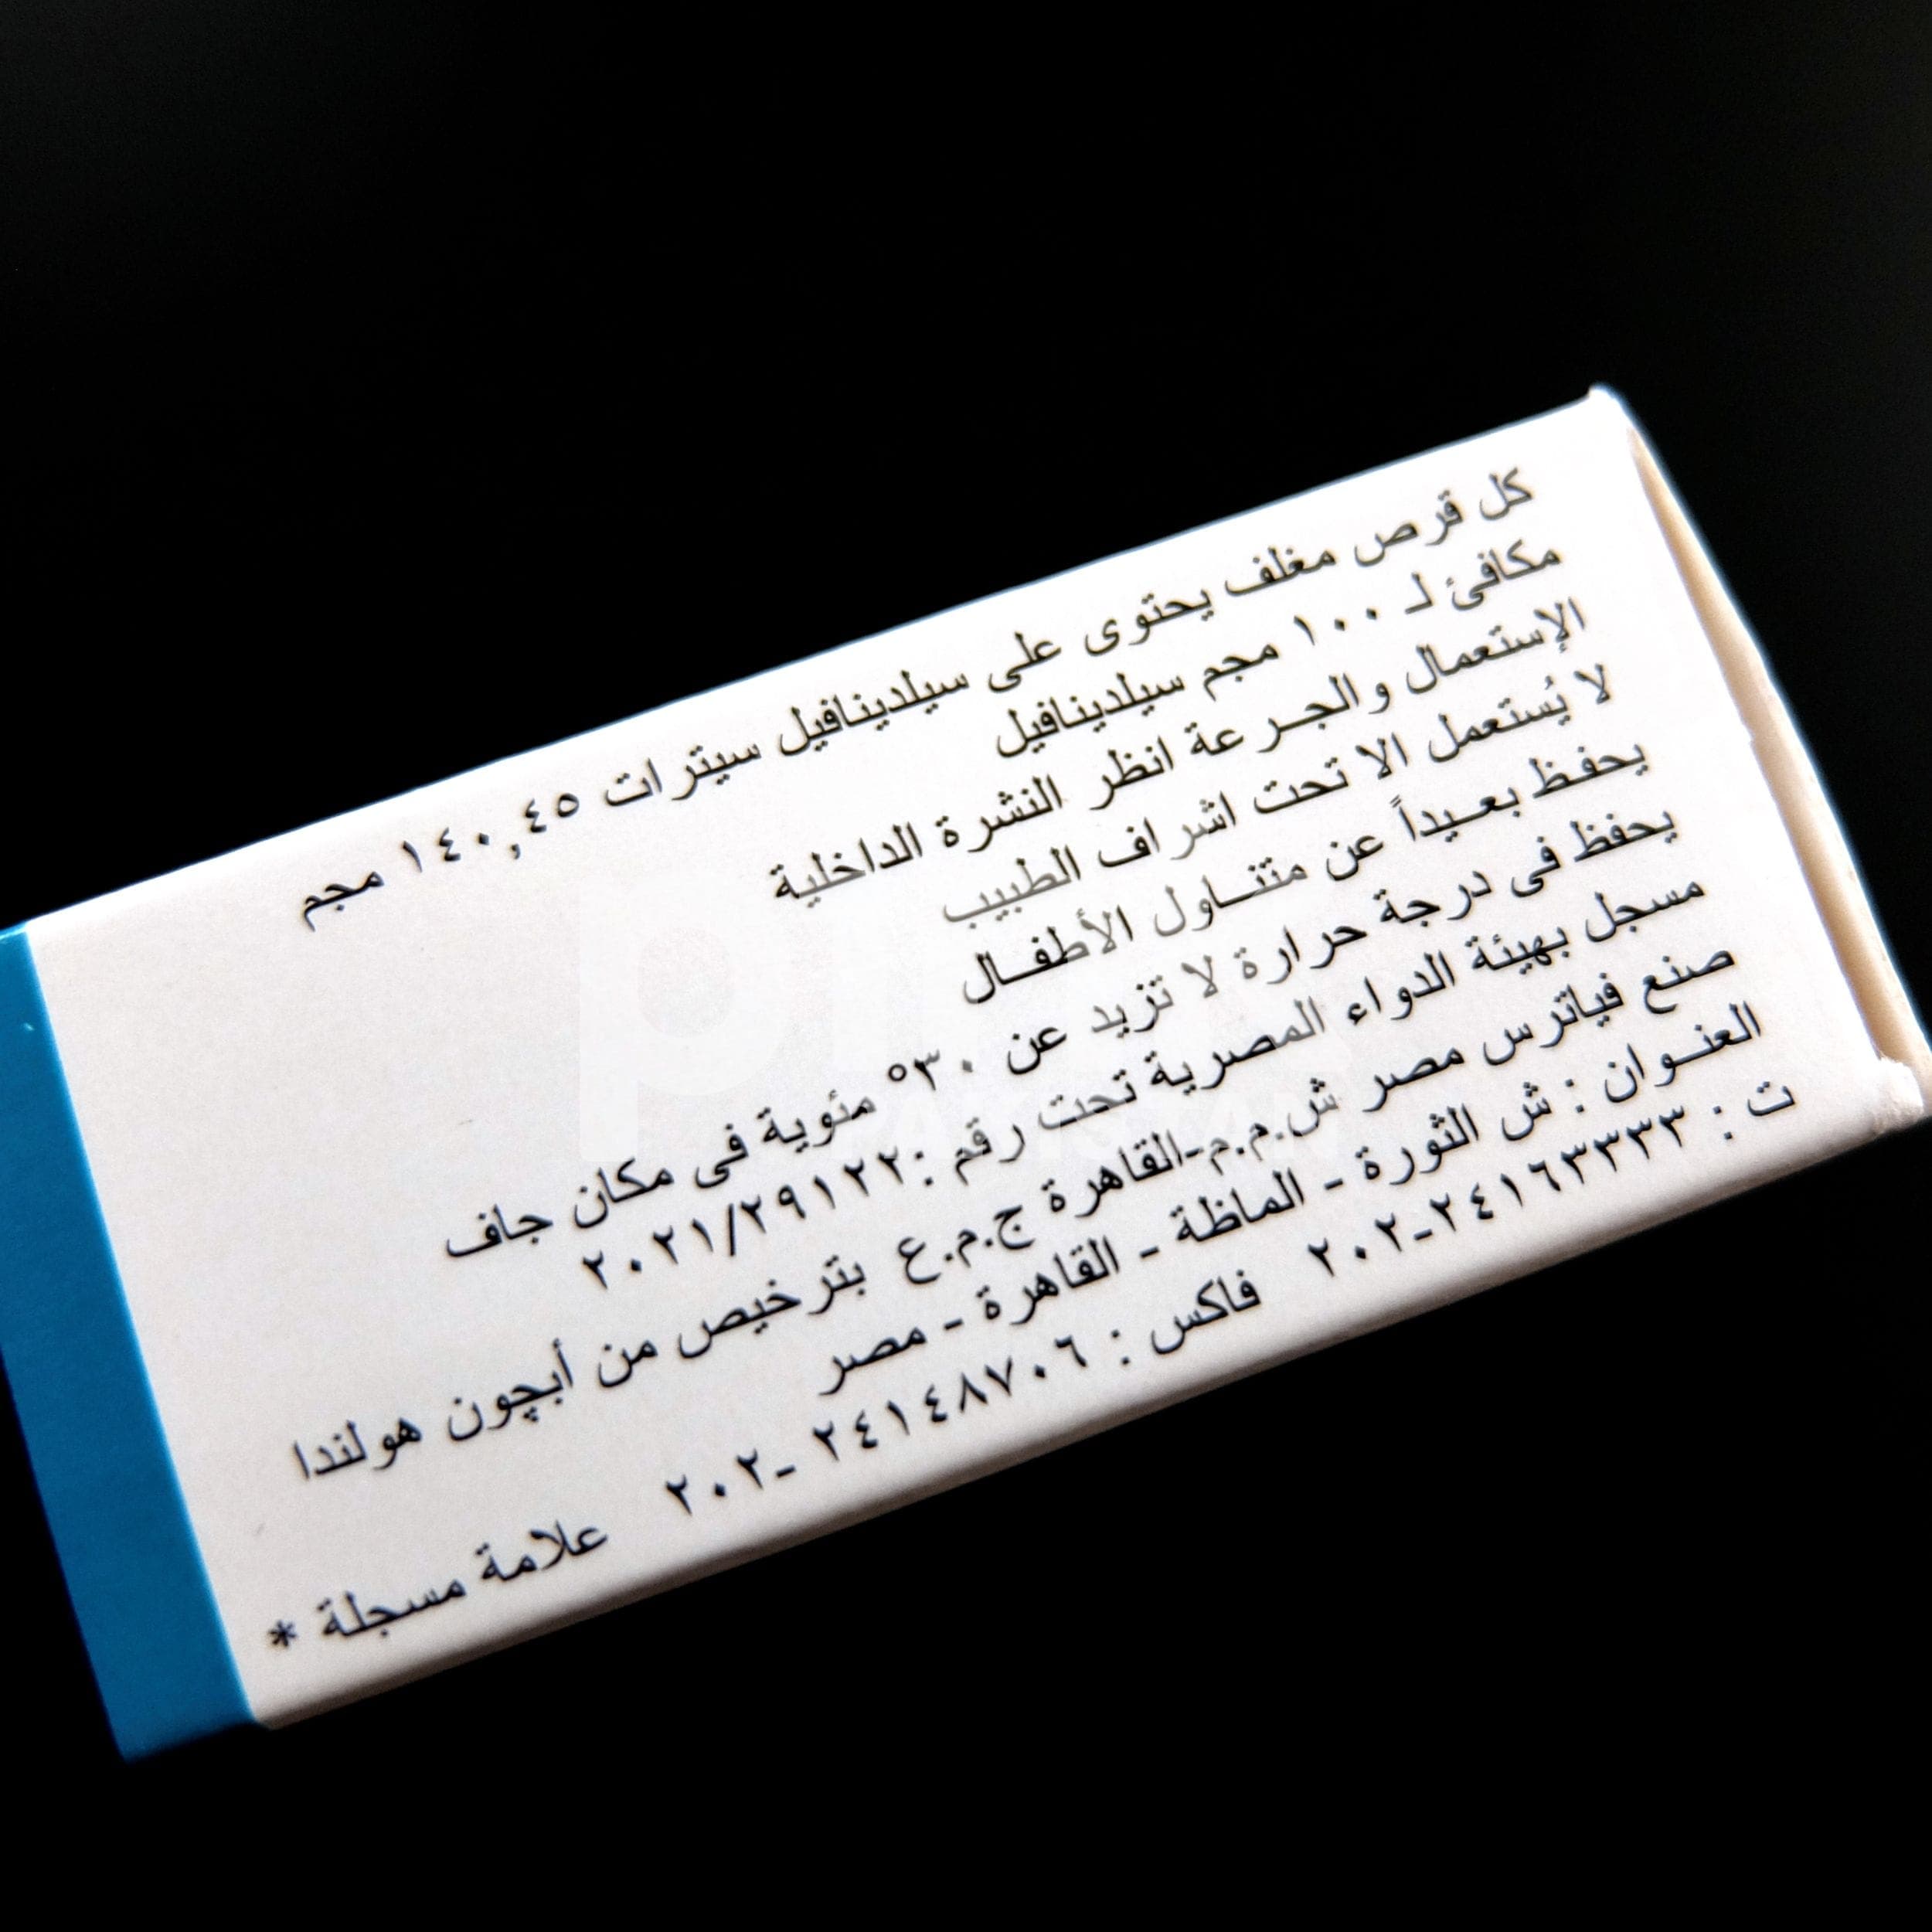 كل قرص مغلف يحتوى على سيلدينافيل سيترات ١٤٠,٤٥ مجم
مكافئ لـ ١٠٠ مجم سيلدينافيل
الإستعمال والجرعة انظر النشرة الداخلية
لا يُستعمل الا تحت اشراف الطبيب
يحفظ بعيداً عن متناول الأطفال
يحفظ فى درجة حرارة لا تزيد عن ٣٠° مئوية فى مكان جاف
مسجل بهيئة الدواء المصرية تحت رقم :٢٠٢١/٢٩١٢٢
صنع فياترس مصر ش.م.م-القاهرة ج.م.ع بترخيص من أبچون هولندا
العنوان : ش الثورة - الماظة - القاهرة - مصر
ت : ٢٤١٦٣٣٣٣-٢٠٢ فاكس : ٢٤١٤٨٧٠٦ -٢٠٢ علامة مسجلة *